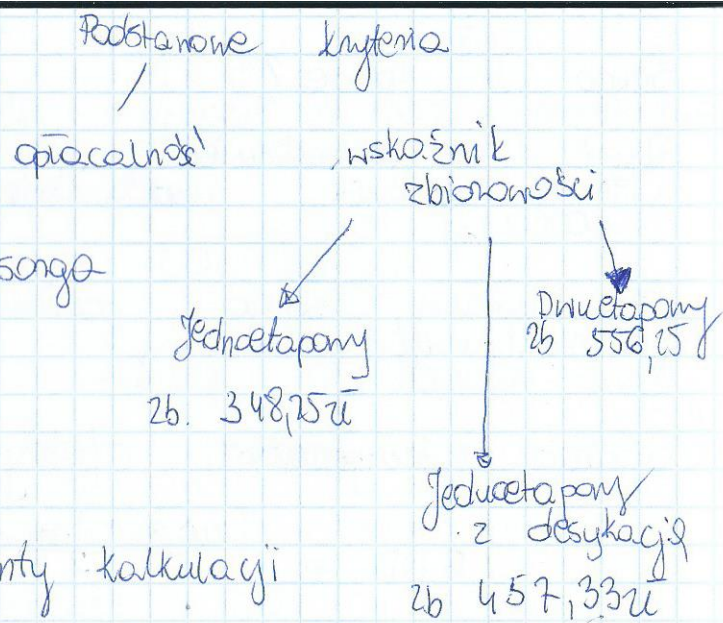 Podstawowe kryteria
opłacalność
wskaźnik
zbiorowości
songo
Jednoetapowy
zb. 348,25zł
Dwuetapowy
zb 556,25
Jednoetapowy
z desykacją
zb 457,33zł
nty kalkulacji